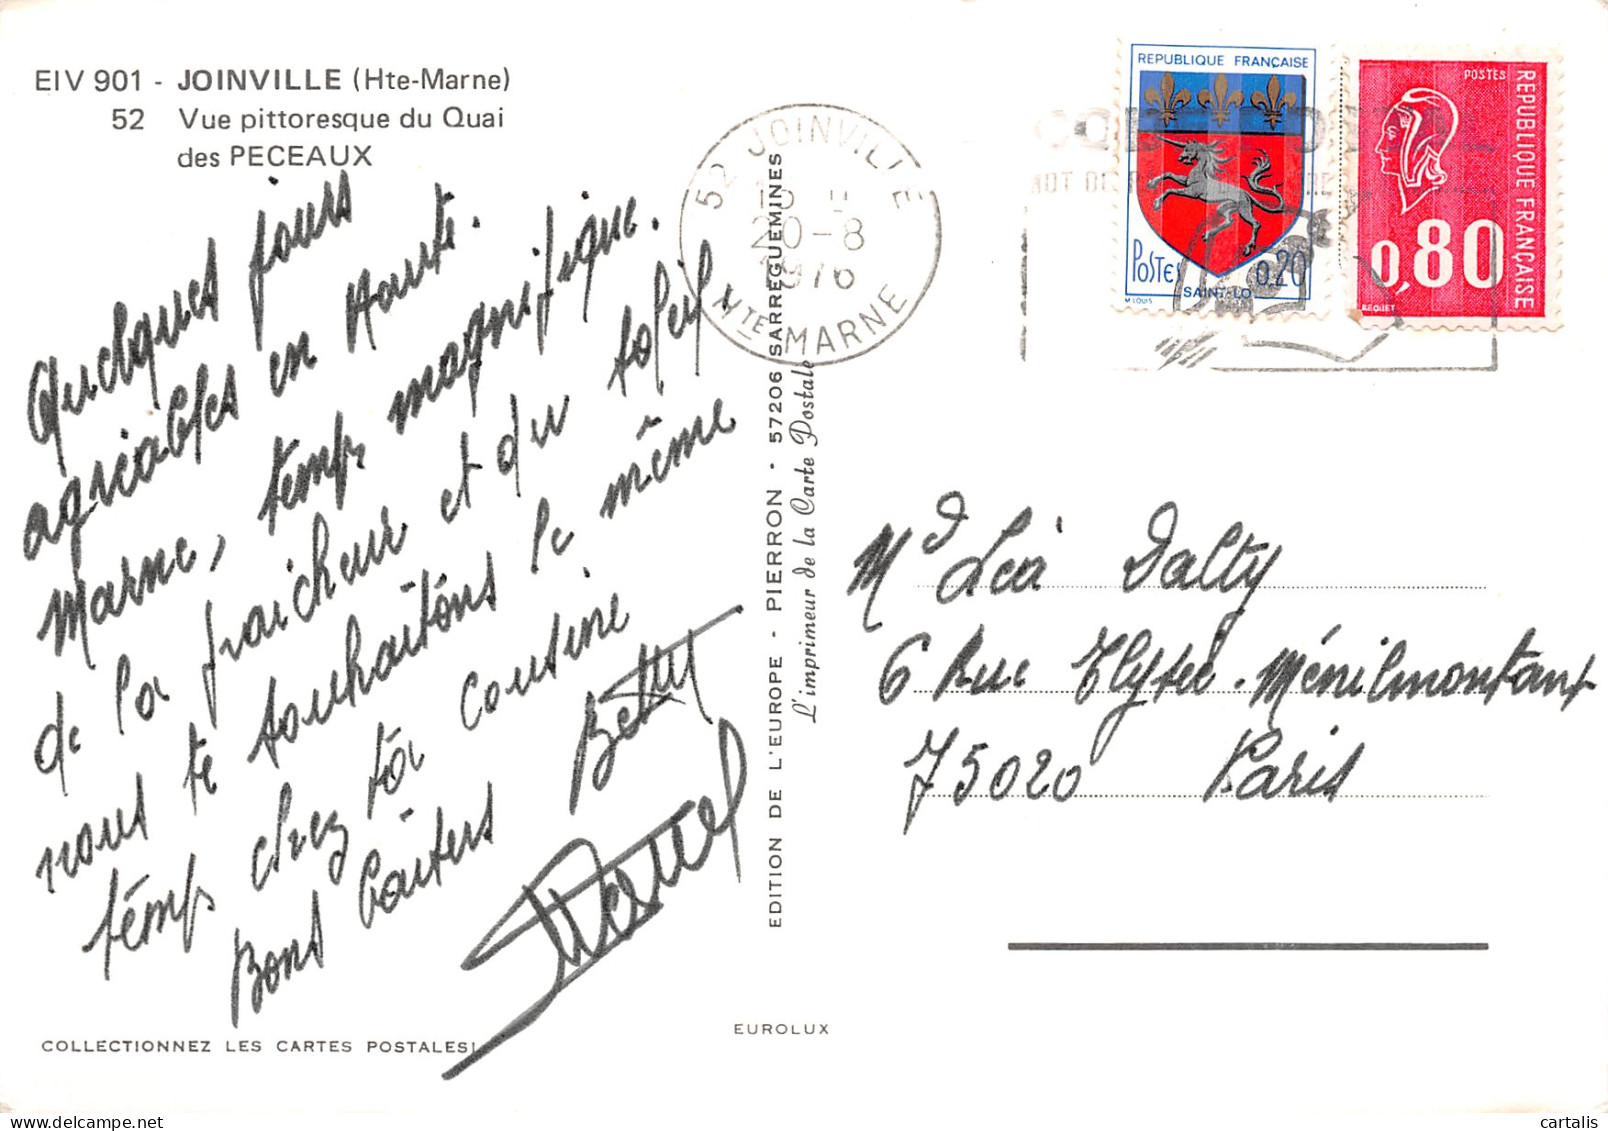 EIV 901 - JOINVILLE (Hte-Marne)
52 Vue pittoresque du Quai
des PECEAUX
Quelques jours
agréables en Haute.
Marne, temps magnifique.
de la fraicheur et du soleil
nous te souhaitons le même
temps chez toi cousine
Bons baisers Betty
Marcel
COLLECTIONNEZ LES CARTES POSTALES!
EUROLUX
EDITION DE L'EUROPE - PIERRON - 57206 SARREGUEMINES
L'imprimeur de la Carte Postale
52 JOINVILLE
20-8
1976
HTE MARNE
REPUBLIQUE FRANÇAISE
POSTES
0,20
SAINT-LO
M.LOUIS
POSTES
REPUBLIQUE FRANÇAISE
0,80
BEQUET
Md Léa Dalty
6 Rue Elysée. Ménilmontant
75020 Paris
cartalis